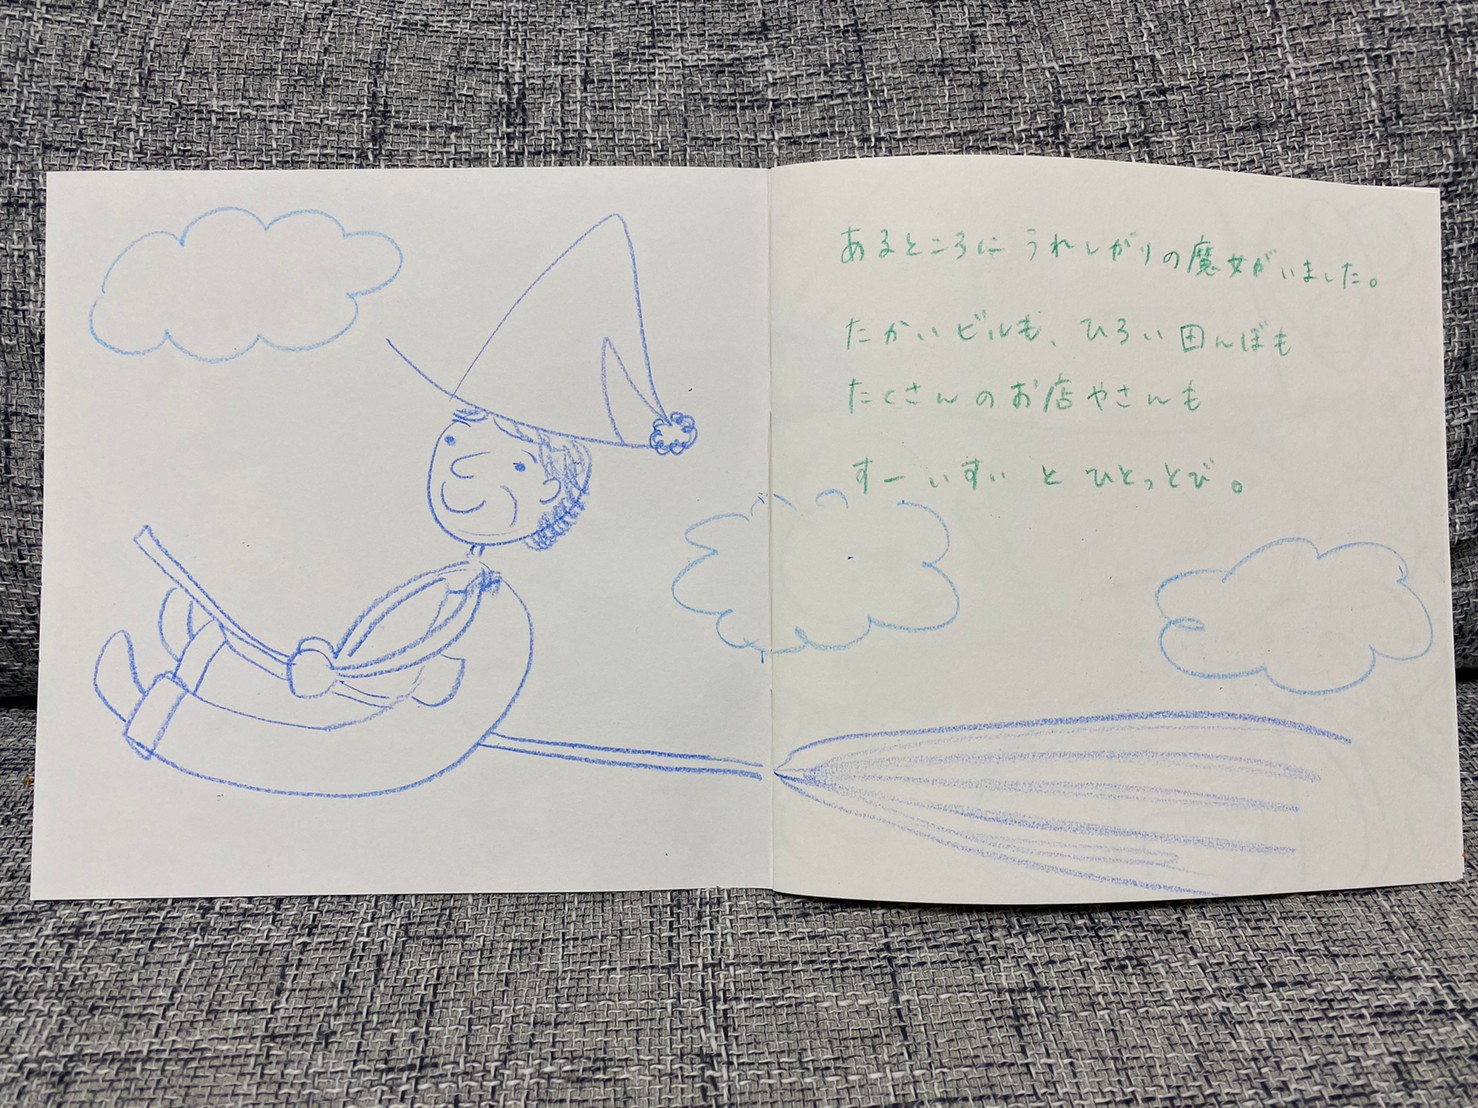 あるところに うれしがりの魔女がいました。
たかいビルも、ひろい田んぼも
たくさんのお店やさんも
すーいすい と ひとっとび。